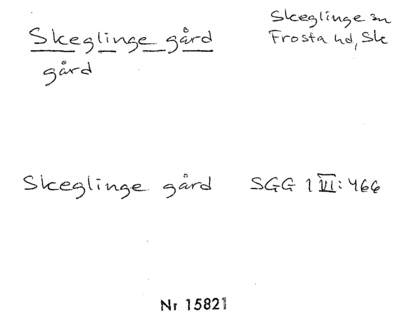 Skeglinge gård
gård
Skeglinge sn
Frosta hd, Sk
Skeglinge gård SGG 1 VI: 466
Nr 15821